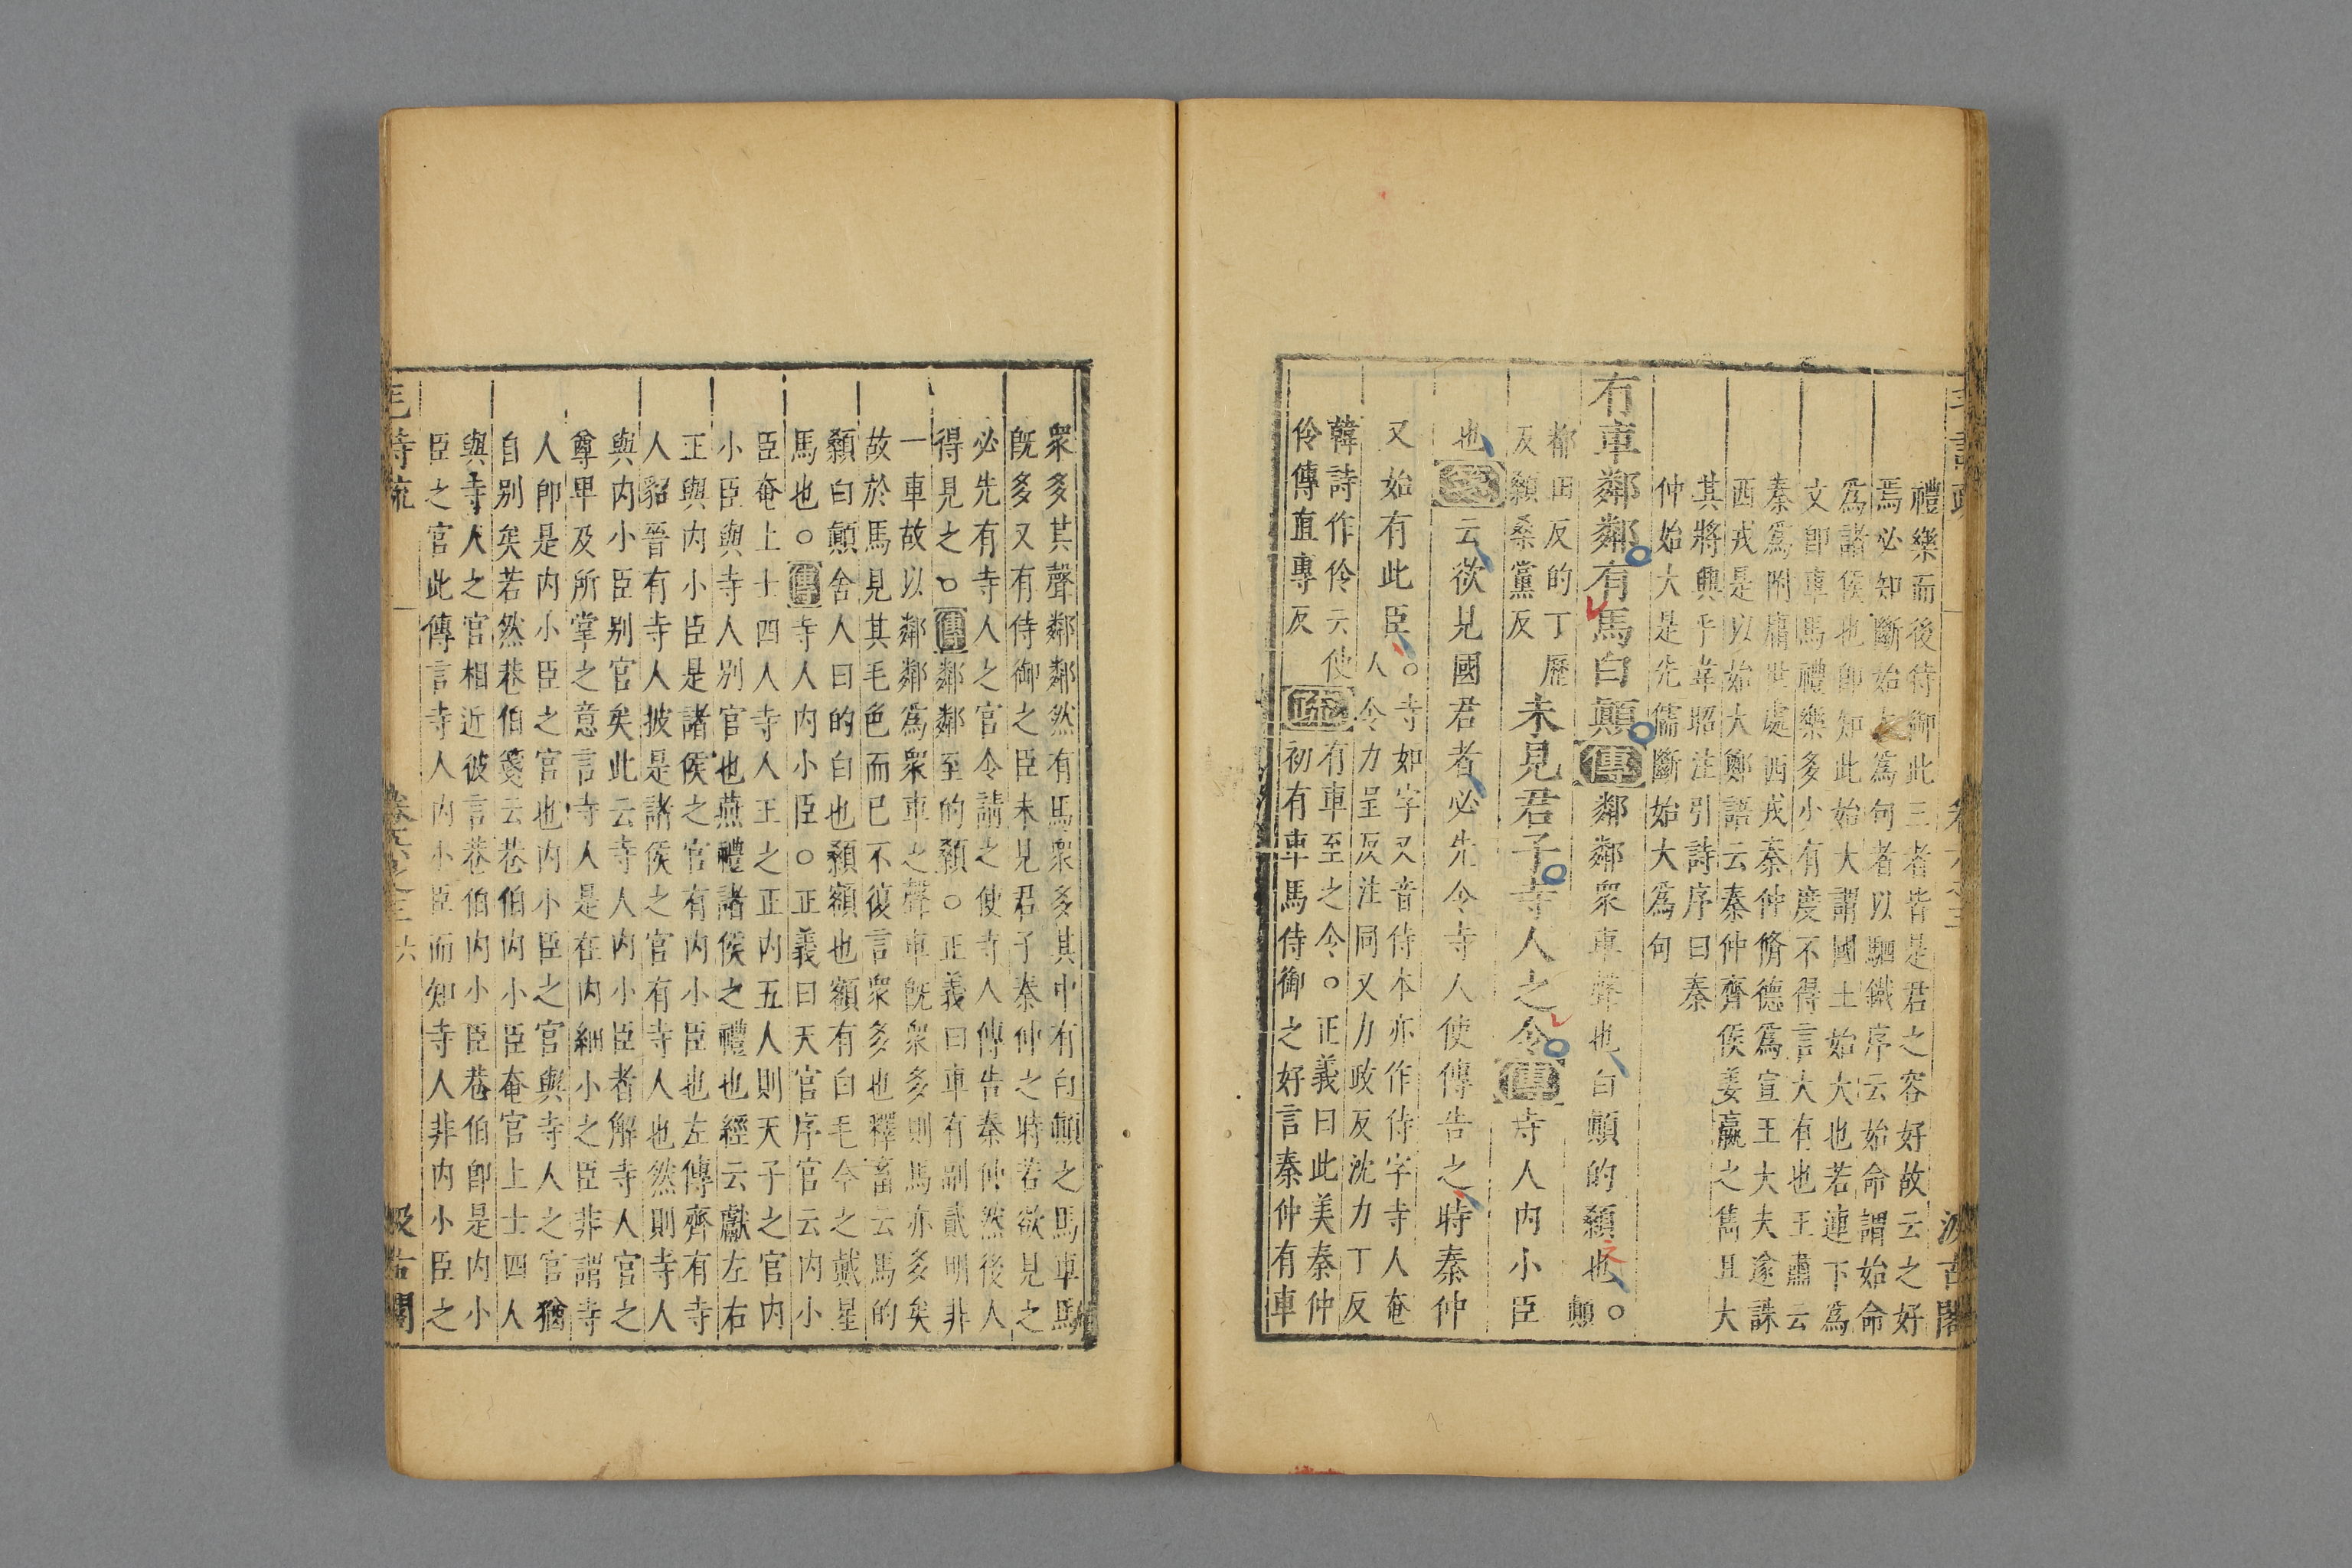 禮樂而後侍御此三者皆是君之容好故云之好
焉必知斷始大爲句者以駟鐵序云始命謂始命
爲諸侯也即知此始大謂國土始大也若連下爲
文即車馬禮樂多少有度不得言大有也王肅云
秦爲附庸世處西戎秦仲脩德爲宣王大夫遂誅
西戎是以始大鄭語云秦仲齊侯姜嬴之雋且大
其將興乎韋昭注引詩序曰秦
仲始大是先儒斷始大爲句
有車鄰鄰有馬白顚傳鄰鄰衆車聲也白顚的顙也○顚
都田反的丁歷
反顙桑黨反
未見君子寺人之令傳寺人內小臣
也箋云欲見國君者必先令寺人使傳告之時秦仲
又始有此臣○寺如字又音侍本亦作侍字寺人奄
人令力呈反注同又力政反沈力丁反
韓詩作伶云使
伶傳直專反
疏有車至之令○正義曰此美秦仲
初有車馬侍御之好言秦仲有車
汲古閣
衆多其聲鄰鄰然有馬衆多其中有白顚之馬車馬
旣多又有侍御之臣未見君子秦仲之時若欲見之
必先有寺人之官令請之使寺人傳告秦仲然後人
得見之○傳鄰鄰至的顙○正義曰車有副貳明非
一車故以鄰鄰爲衆車之聲車旣衆多則馬亦多矣
故於馬見其毛色而已不復言衆多也釋畜云馬的
顙白顚舍人曰的白也顙額也額有白毛今之戴星
馬也○傳寺人內小臣○正義曰天官序官云內小
臣奄上士四人寺人王之正內五人則天子之官內
小臣與寺人別官也燕禮諸侯之禮也經云獻左右
正與內小臣是諸侯之官有內小臣也左傳齊有寺
人貂晉有寺人披是諸侯之官有寺人也然則寺人
與內小臣別官矣此云寺人內小臣者解寺人官之
尊卑及所掌之意言寺人是在內細小之臣非謂寺
人即是內小臣之官也內小臣之官與寺人之官猶
自別矣若然巷伯箋云巷伯內小臣奄官上士四人
與寺人之官相近彼言巷伯內小臣巷伯即是內小
臣之官此傳言寺人內小臣而知寺人非內小臣之
毛詩疏
卷六之三
六
汲古閣